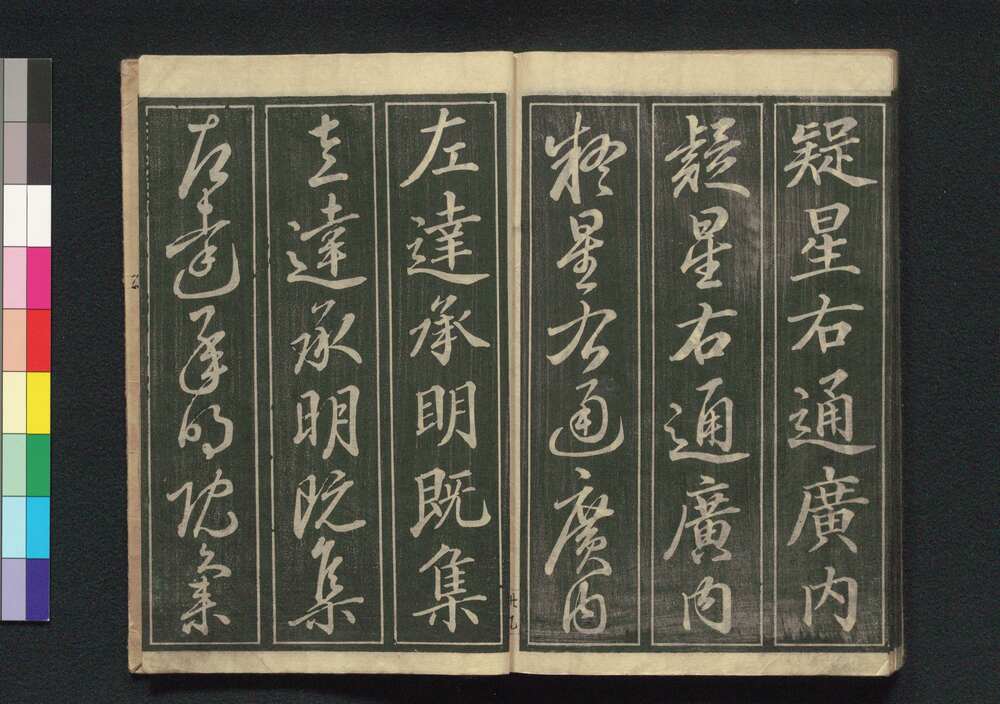 疑星右通廣内
疑星右通廣内
疑星右通廣内
左達承明既集
左達承明既集
左達承明既集